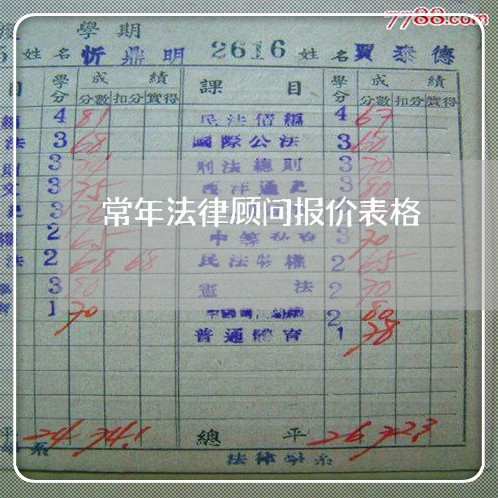 7788.com
學期
姓名 忻鼎明 2616 姓名 賈泰德
目 學分 成績 課目 學分 成績
分數 扣分 實得 分數 扣分 實得
4 81 民法債編 4 67
法 3 68 國際公法 3 60
3 刑法總則 3 70
3 75 西洋通史 3 80
常年法律顾问报价表格
2 65 3 70
法 2 68 68 民法物權 2 65
3 80 憲法 2 70
1 70 2 80
普通體育 1 78
平 24 74.1 總平 26 72.3
系 法律學系